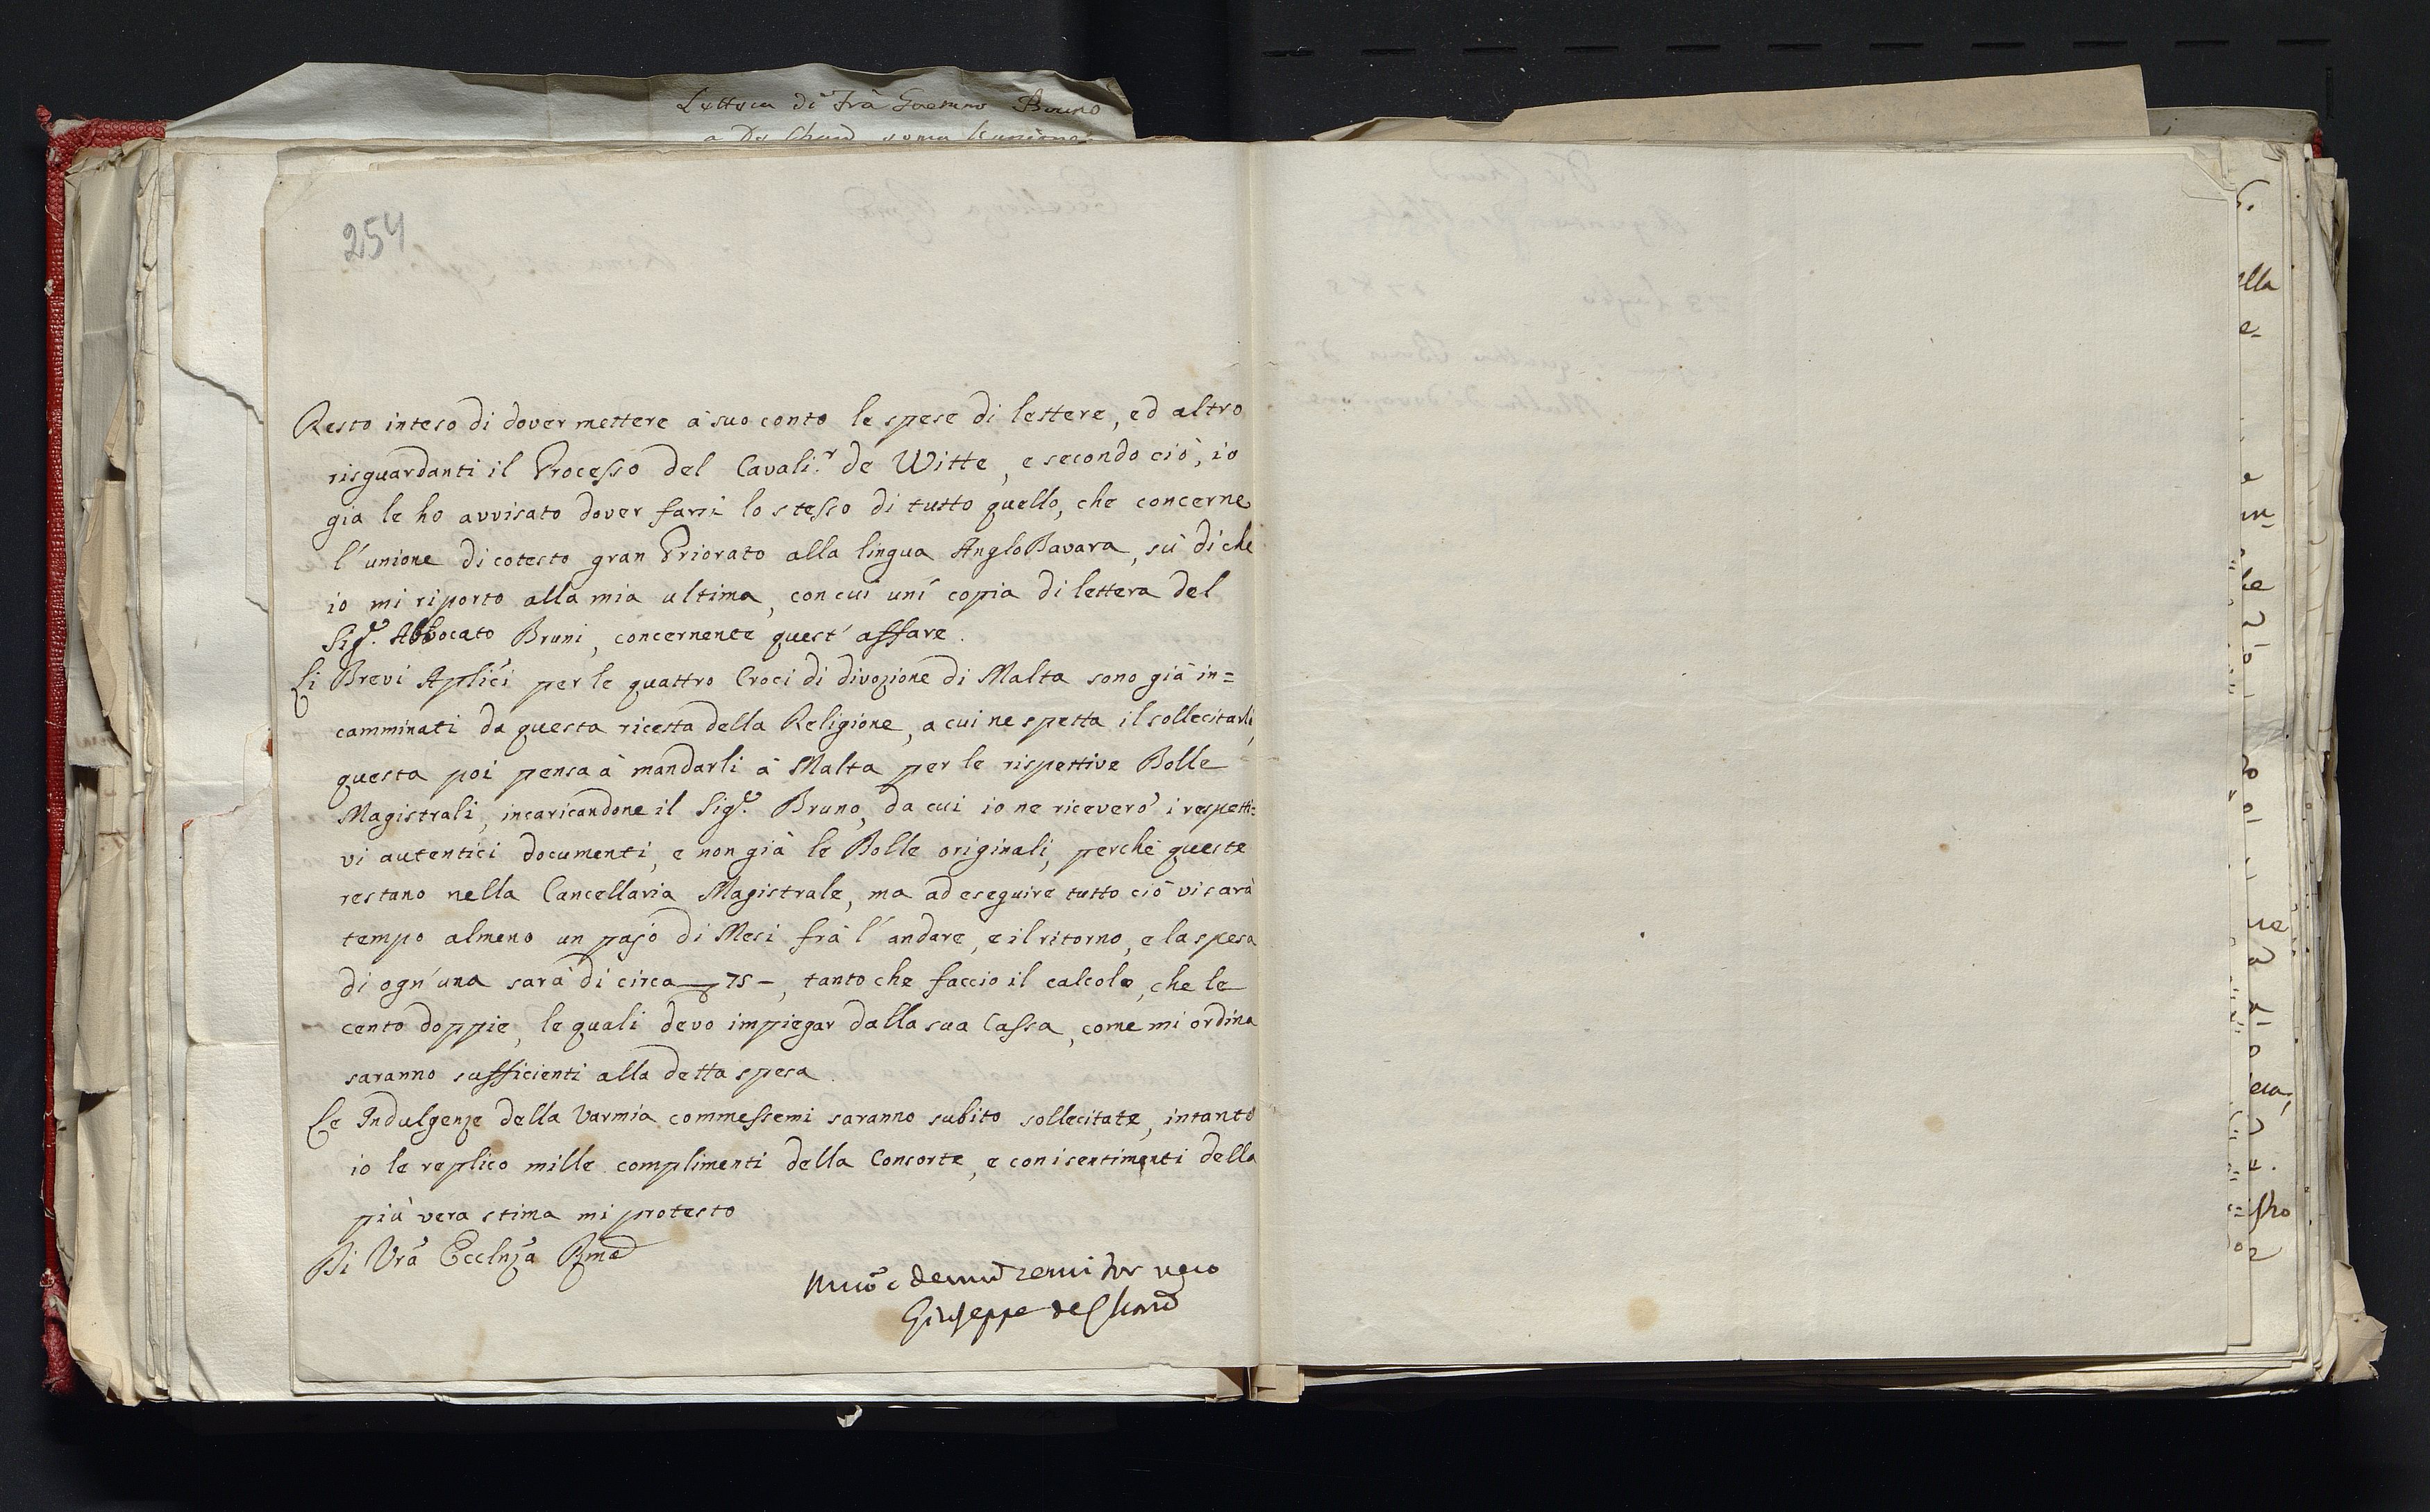 Lettera di Frà Gaetano Bruno
254
Resto inteso di dover mettere à suo conto le spese di lettere, ed altro
risguardanti il Processo del Cavalir. de Witte, e secondo ciò, io
già le ho avvisato dover farsi lo stesso di tutto quello, che concerne
l'unione di cotesto gran Priorato alla lingua AngloBavara, sù di che
io mi riporto alla mia ultima, con cui uní copia di lettera del
Sigr. Abbocato Bruni, concernente quest'affare.
Li Brevi Aplici per le quattro Croci di divozione di Malta sono già in=
camminati da questa ricetta della Religione, a cui ne spetta il sollecitarli,
questa poi pensa à mandarli à Malta per le rispettive Bolle
Magistrali, incaricandone il Sigr. Bruno, da cui io ne riceverò i respetti=
vi autentici documenti, e non già le Bolle originali, perchè queste
restano nella Cancellaria Magistrale, ma ad eseguire tutto ciò vi sarà
tempo almeno un pajo di Mesi frà l'andare, e il ritorno, e la spesa
di ogn'una sarà di circa 75 -, tanto che faccio il calcolo, che le
cento doppie, le quali devo impiegar dalla sua Cassa, come mi ordina
saranno sufficienti alla detta spesa.
Le Indulgenze della Varmia commessemi saranno subito sollecitate, intanto
io le replico mille complimenti della Consorte, e con i sentimenti della
più vera stima mi protesto
Di Vrã Ecclnza Rma
Giuseppe de